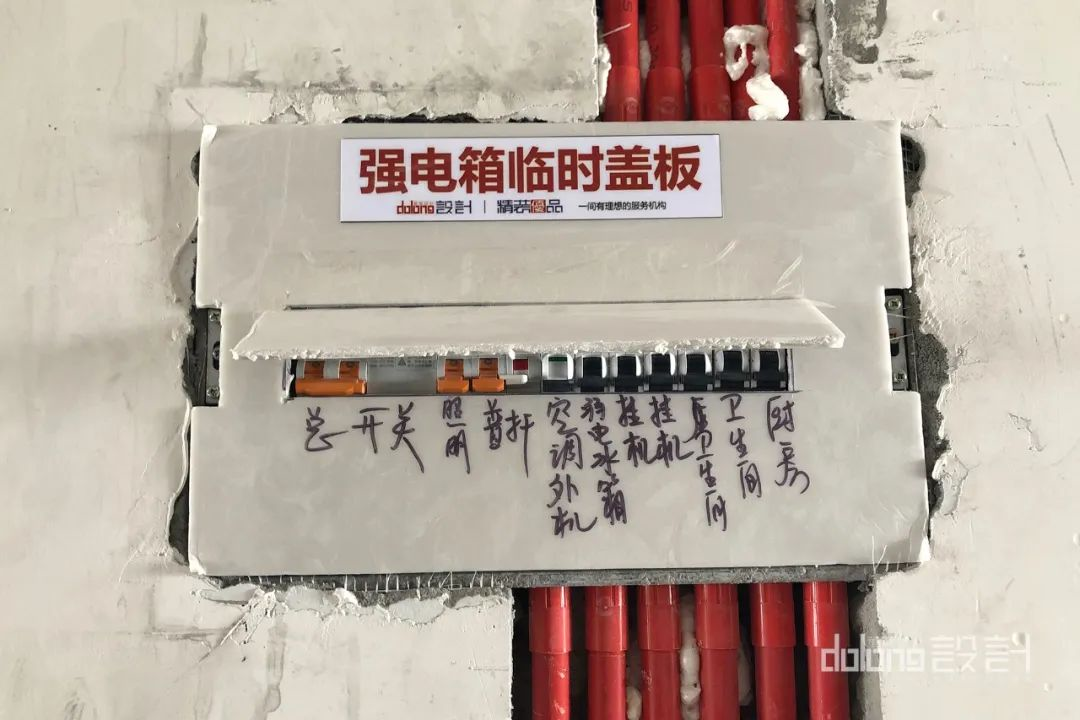 强电箱临时盖板
dolong設計 | 精装優品 一间有理想的服务机构
总开关
照明
普插
空调外机
弱电冰箱
挂机
挂机
卫生间
卫生间
厨房
dolong設計